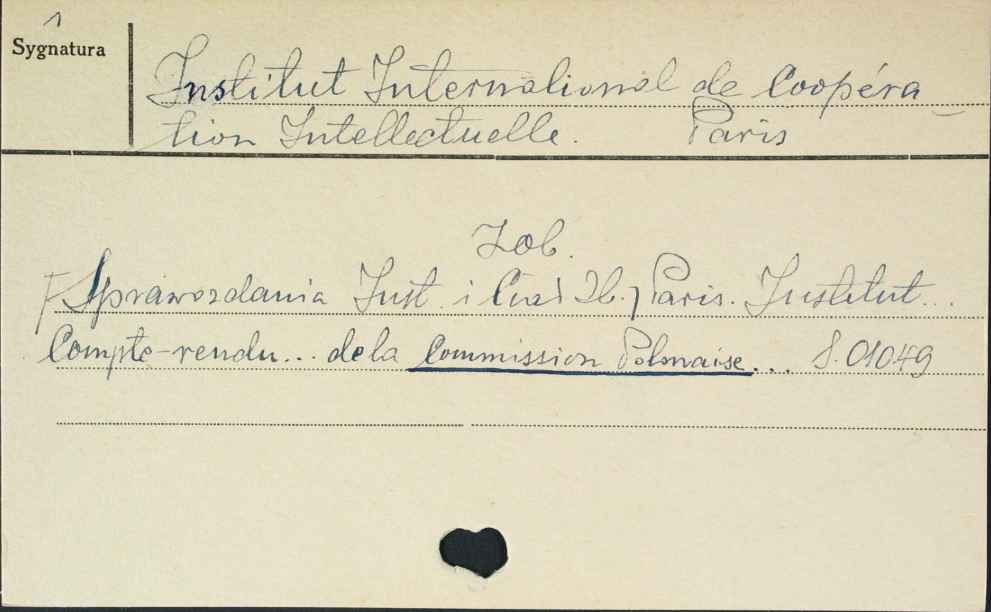 Sygnatura
Institut International de Coopéra
tion Intellectuelle. Paris
Zob.
[Sprawozdania Inst. i Ciał Zb.] Paris. Institut...
Compte-rendu... de la Commission Polonaise... S. 01049